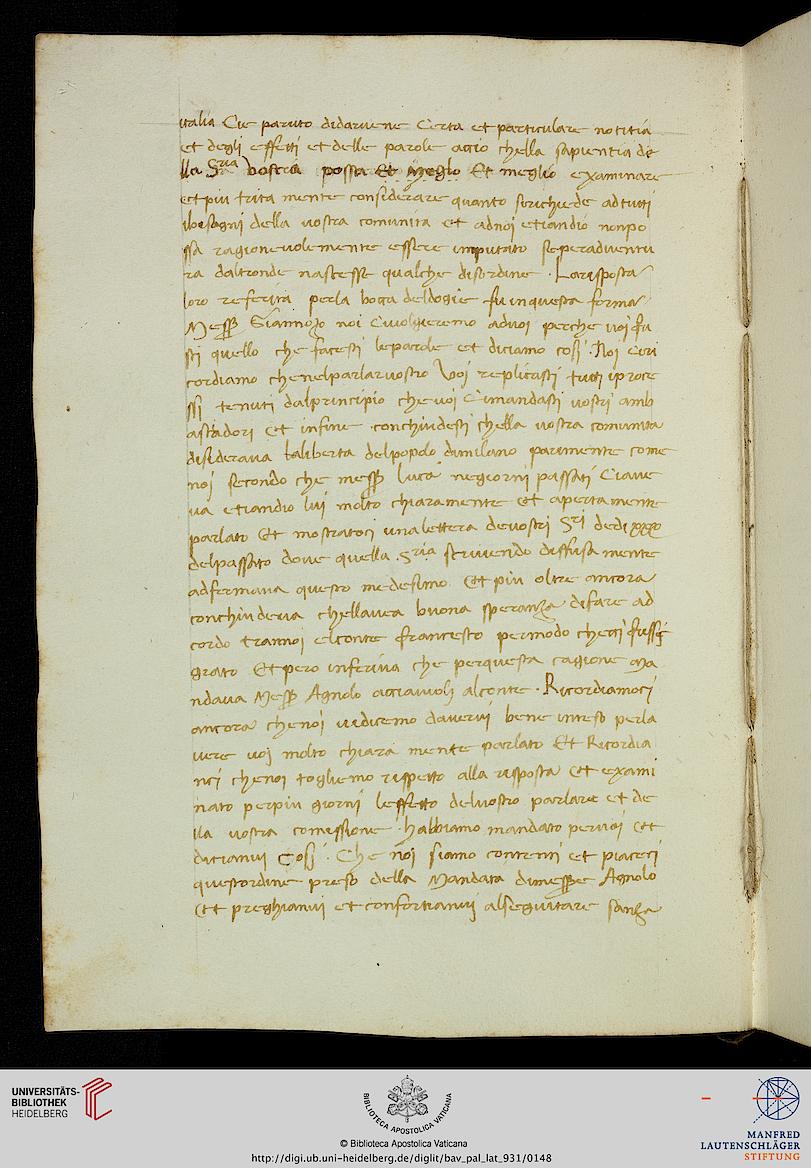 italia Cie paruto didaruene Certa et particulare notitia
et degli effetti et delle parole accio chella sapientia de
lla Sria vostra possa Et meglo Et meglio examinare
et piu trita mente considerare quanto serichiede ad tutti
ibesogni della vostra comunita et adnoi etiandio nonpo
ssa ragioneuolemente essere imputato seperaduentu
ra daltronde nascesse qualche disordine . Larisposta
loro referita perla bocca deldogie fu inquesta forma
Messer Giannozo noi Cuiolgieremo aduoi perche uoi fu
sti quello che facesti leparole et diciamo cosi . Noi Ciri
cordiamo chenelparlaruostro Voi replicasti tutti iproce
ssi tenuti dalprincipio cheuoi Cimandasti vostri amb
asciadori Et infine conchiudesti chella vostra comunita
disideraua laliberta delpopolo dimilano parimente come
noj secondo che messer luca negiorni passati Ciaue
ua etiandio lui molto chiaramente et apertamente
parlato Et mostratoci unalettera deuostri Sri dedi xxx
delpassato doue quella Sria scriuendo diffusa mente
adfermaua questo medesimo Et piu oltre ancora
conchiudeua chellauea buona speranza difare ad
cordo trannoi elconte francesco permodo checci fussi
grato Et pero inferiua che perquesta cagione ma
ndaua Messer Agnolo acciaiuolj alconte . Ricordiamoci
ancora chenoi uidicemo daverui bene inteso perla
uere uoj molto chiara mente parlato Et Ricordia
nci chenoi togliemo rispetto alla risposta Et exami
nato perpiu giorni leffetto deluostro parlare et de
lla vostra comissione . habbiamo mandato peruoi Et
diciamui Cosj . Che noi siamo contenti et piaceci
questordine preso della Mandata dimessere Agnolo
Et preghiamui et confortiamuj alseguitare sanza
UNIVERSITÄTS-
BIBLIOTHEK
HEIDELBERG
BIBLIOTECA APOSTOLICA VATICANA
© Biblioteca Apostolica Vaticana
http://digi.ub.uni-heidelberg.de/diglit/bav_pal_lat_931/0148
MANFRED
LAUTENSCHLÄGER
STIFTUNG